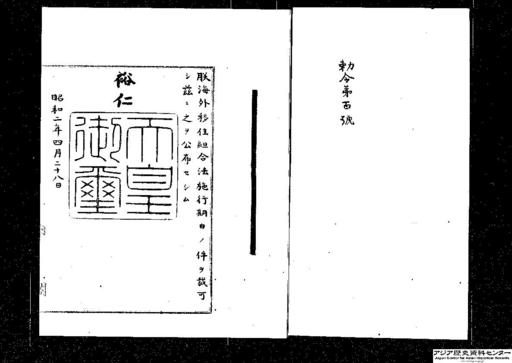 勅令第百號
朕海外移住組合法施行期日ノ件ヲ裁可
シ茲ニ之ヲ公布セシム
裕仁
天皇御璽
昭和二年四月二十八日
アジア歴史資料センター
Japan Center for Asian Historical Records